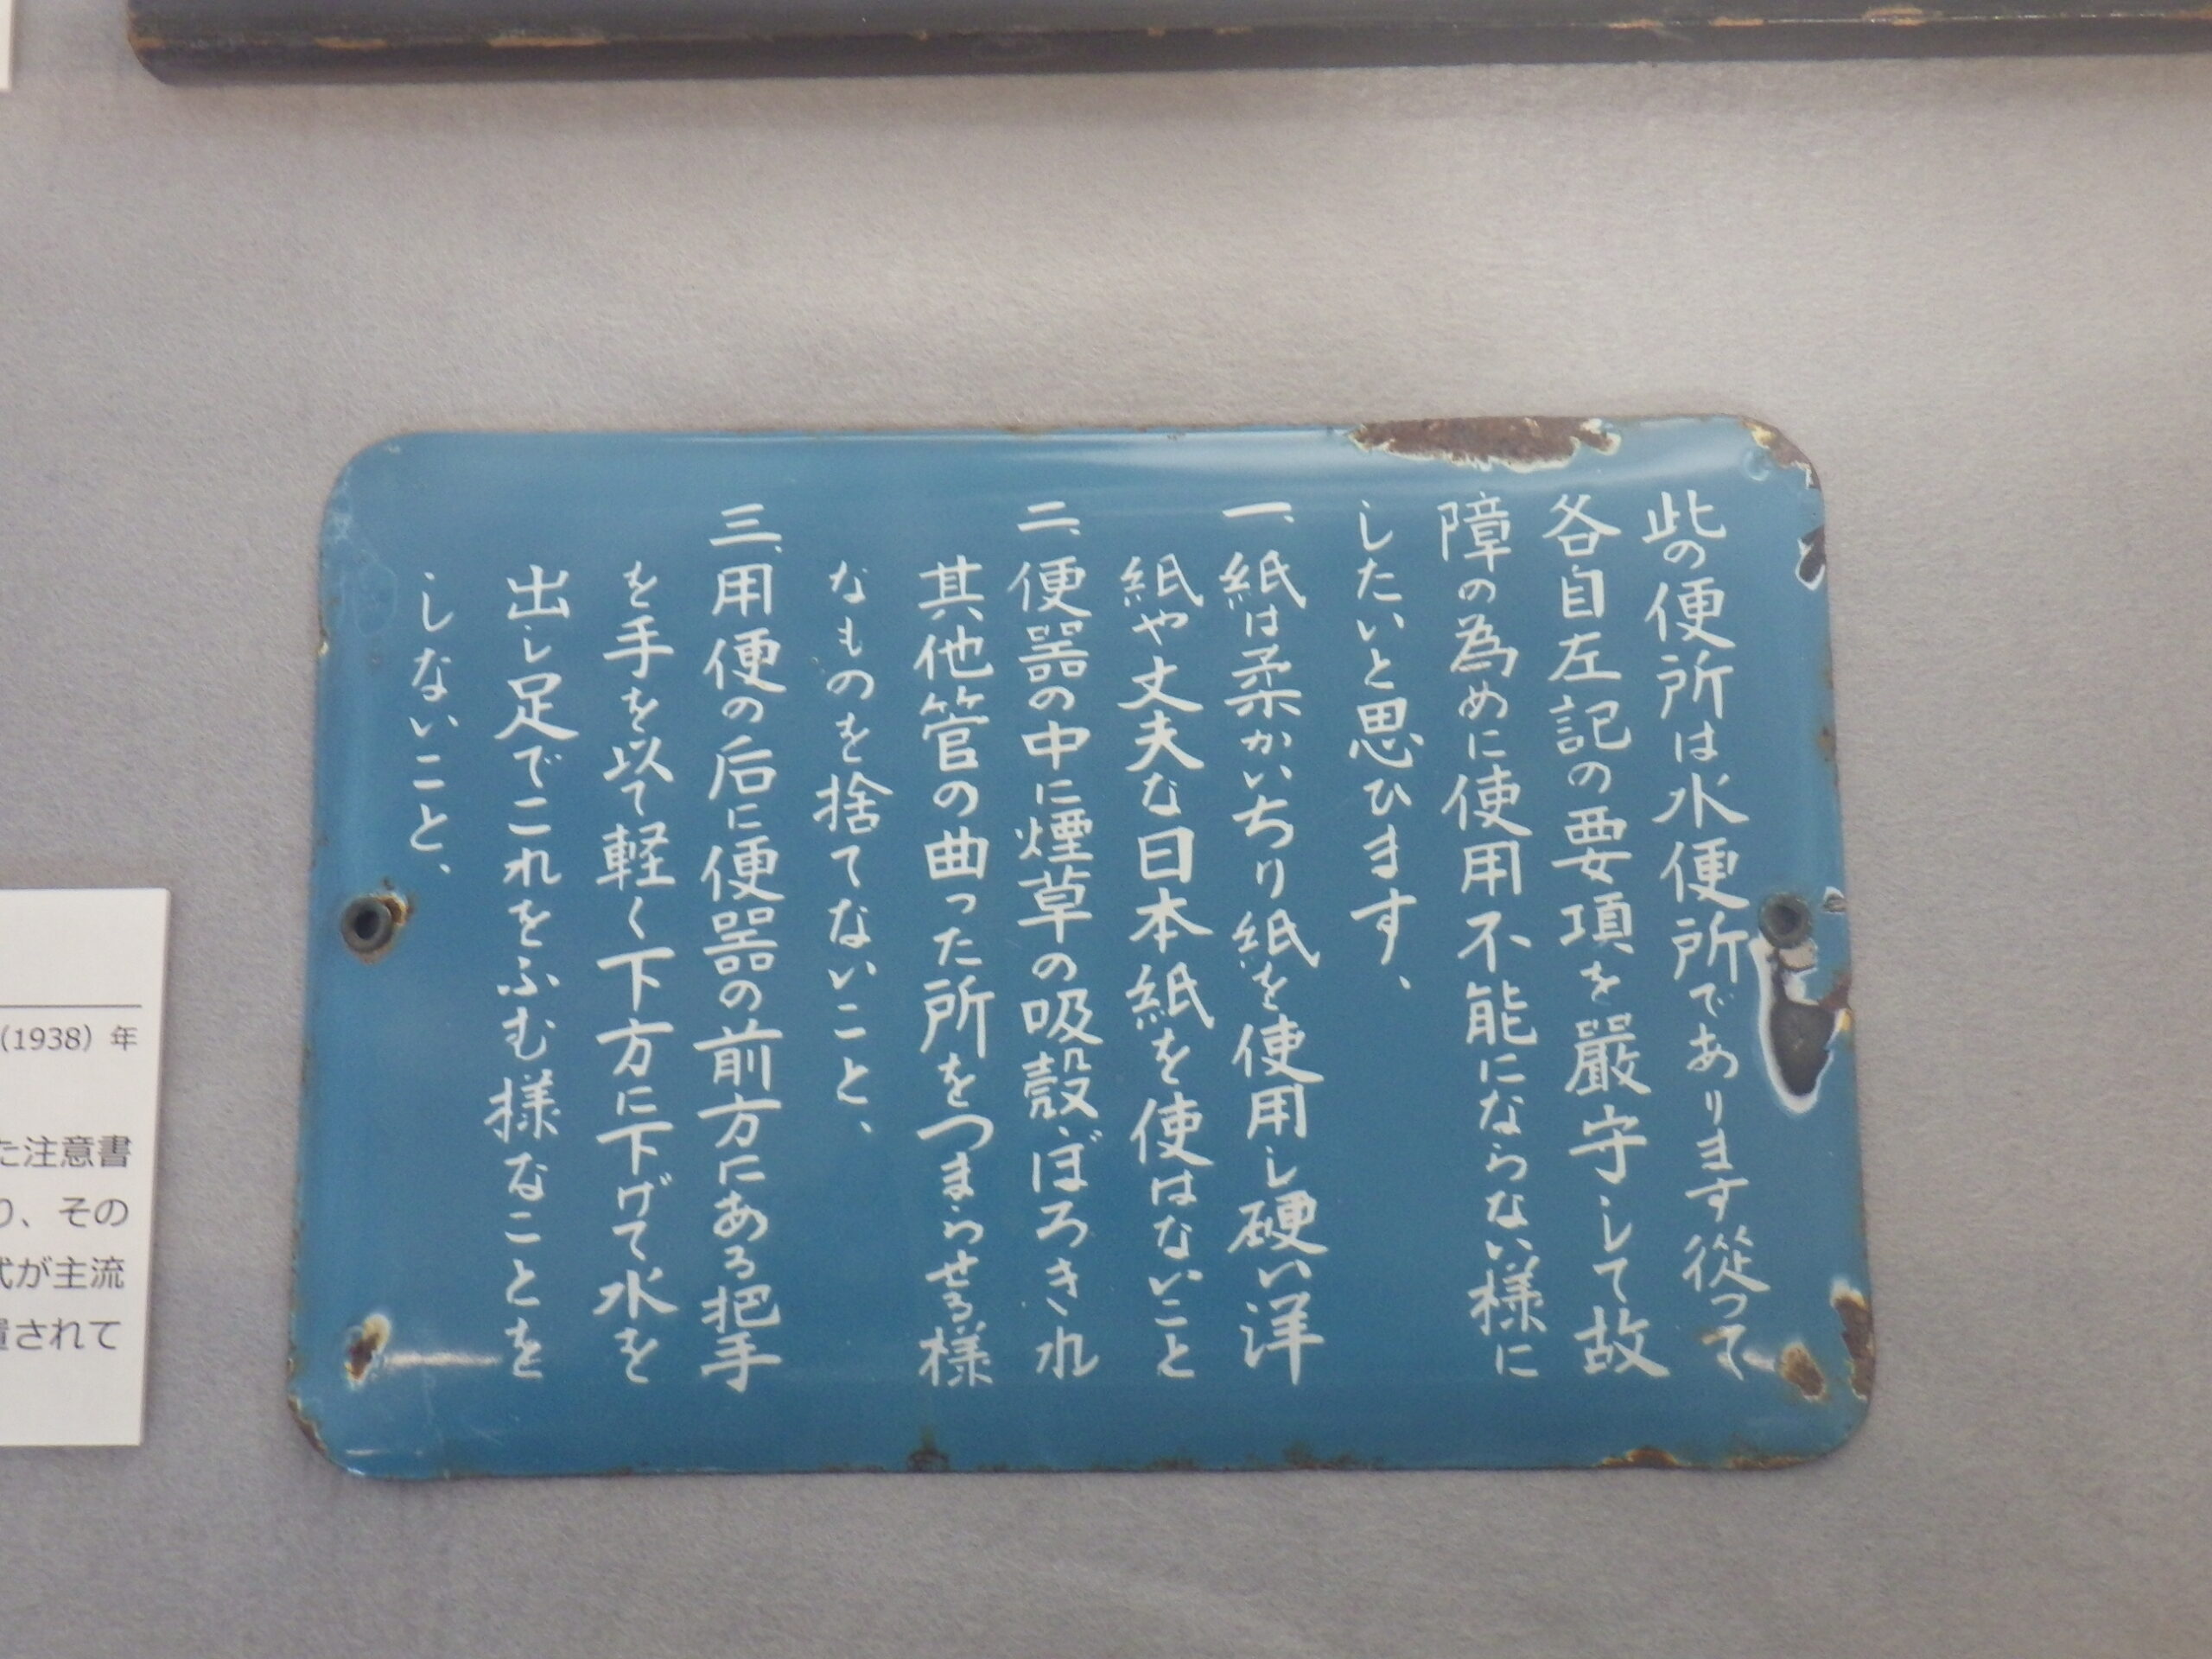 此の便所は水便所であります從つて
各自左記の要項を嚴守して故
障の為めに使用不能にならない様に
したいと思ひます、
一、紙は柔かいちり紙を使用し硬い洋
紙や丈夫な日本紙を使はないこと
二、便器の中に煙草の吸殻、ぼろきれ
其他管の曲った所をつまらせる様
なものを捨てないこと、
三、用便の后に便器の前方にある把手
を手を以て軽く下方に下げて水を
出し足でこれをふむ様なことを
しないこと、
(1938) 年
た注意書
り、その
式が主流
置されて